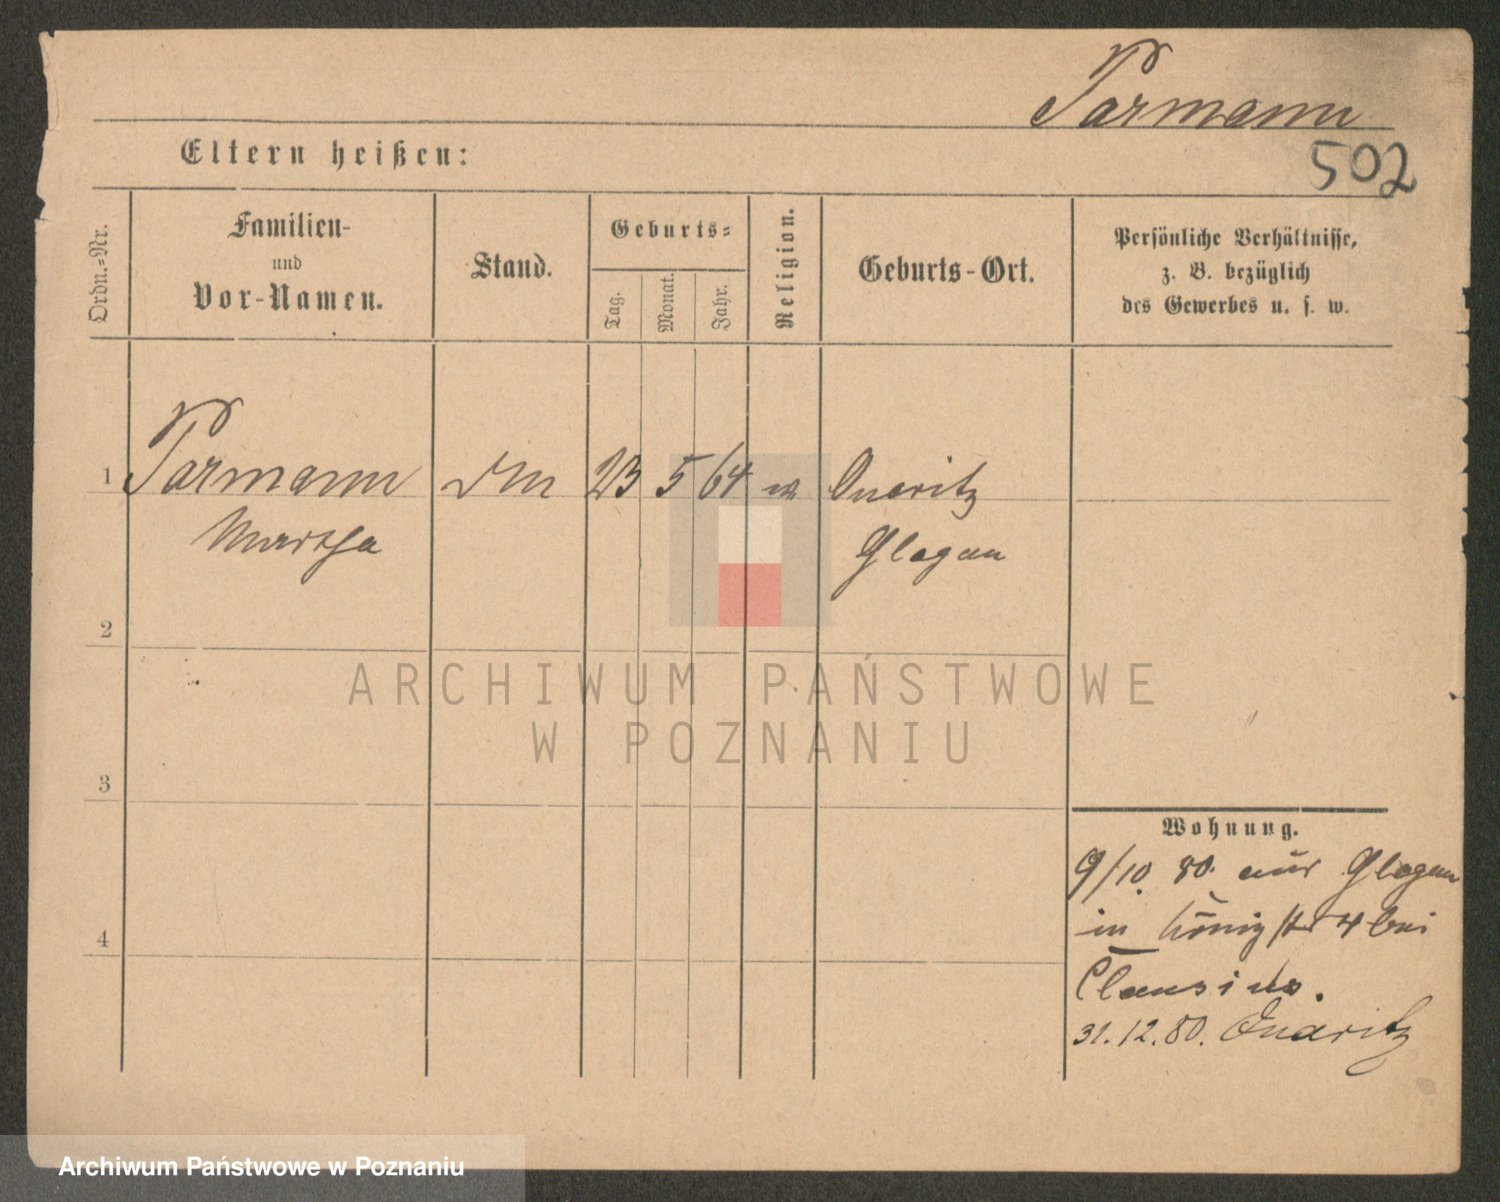 Parmann
502
Eltern heißen:
Ordn.-Nr.
Familien-
und
Vor-Namen.
Stand.
Geburts-
Tag.
Monat.
Jahr.
Religion.
Geburts-Ort.
Persönliche Verhältnisse,
z. B. bezüglich
des Gewerbes u. s. w.
1 Parmann 23 5 64 Quaritz
Martha Glogau
2
3
4
Wohnung.
9/10. 80. aus Glogau
in Königstr 4 bei
31.12.80. Quaritz
ARCHIWUM PAŃSTWOWE
W POZNANIU
Archiwum Państwowe w Poznaniu